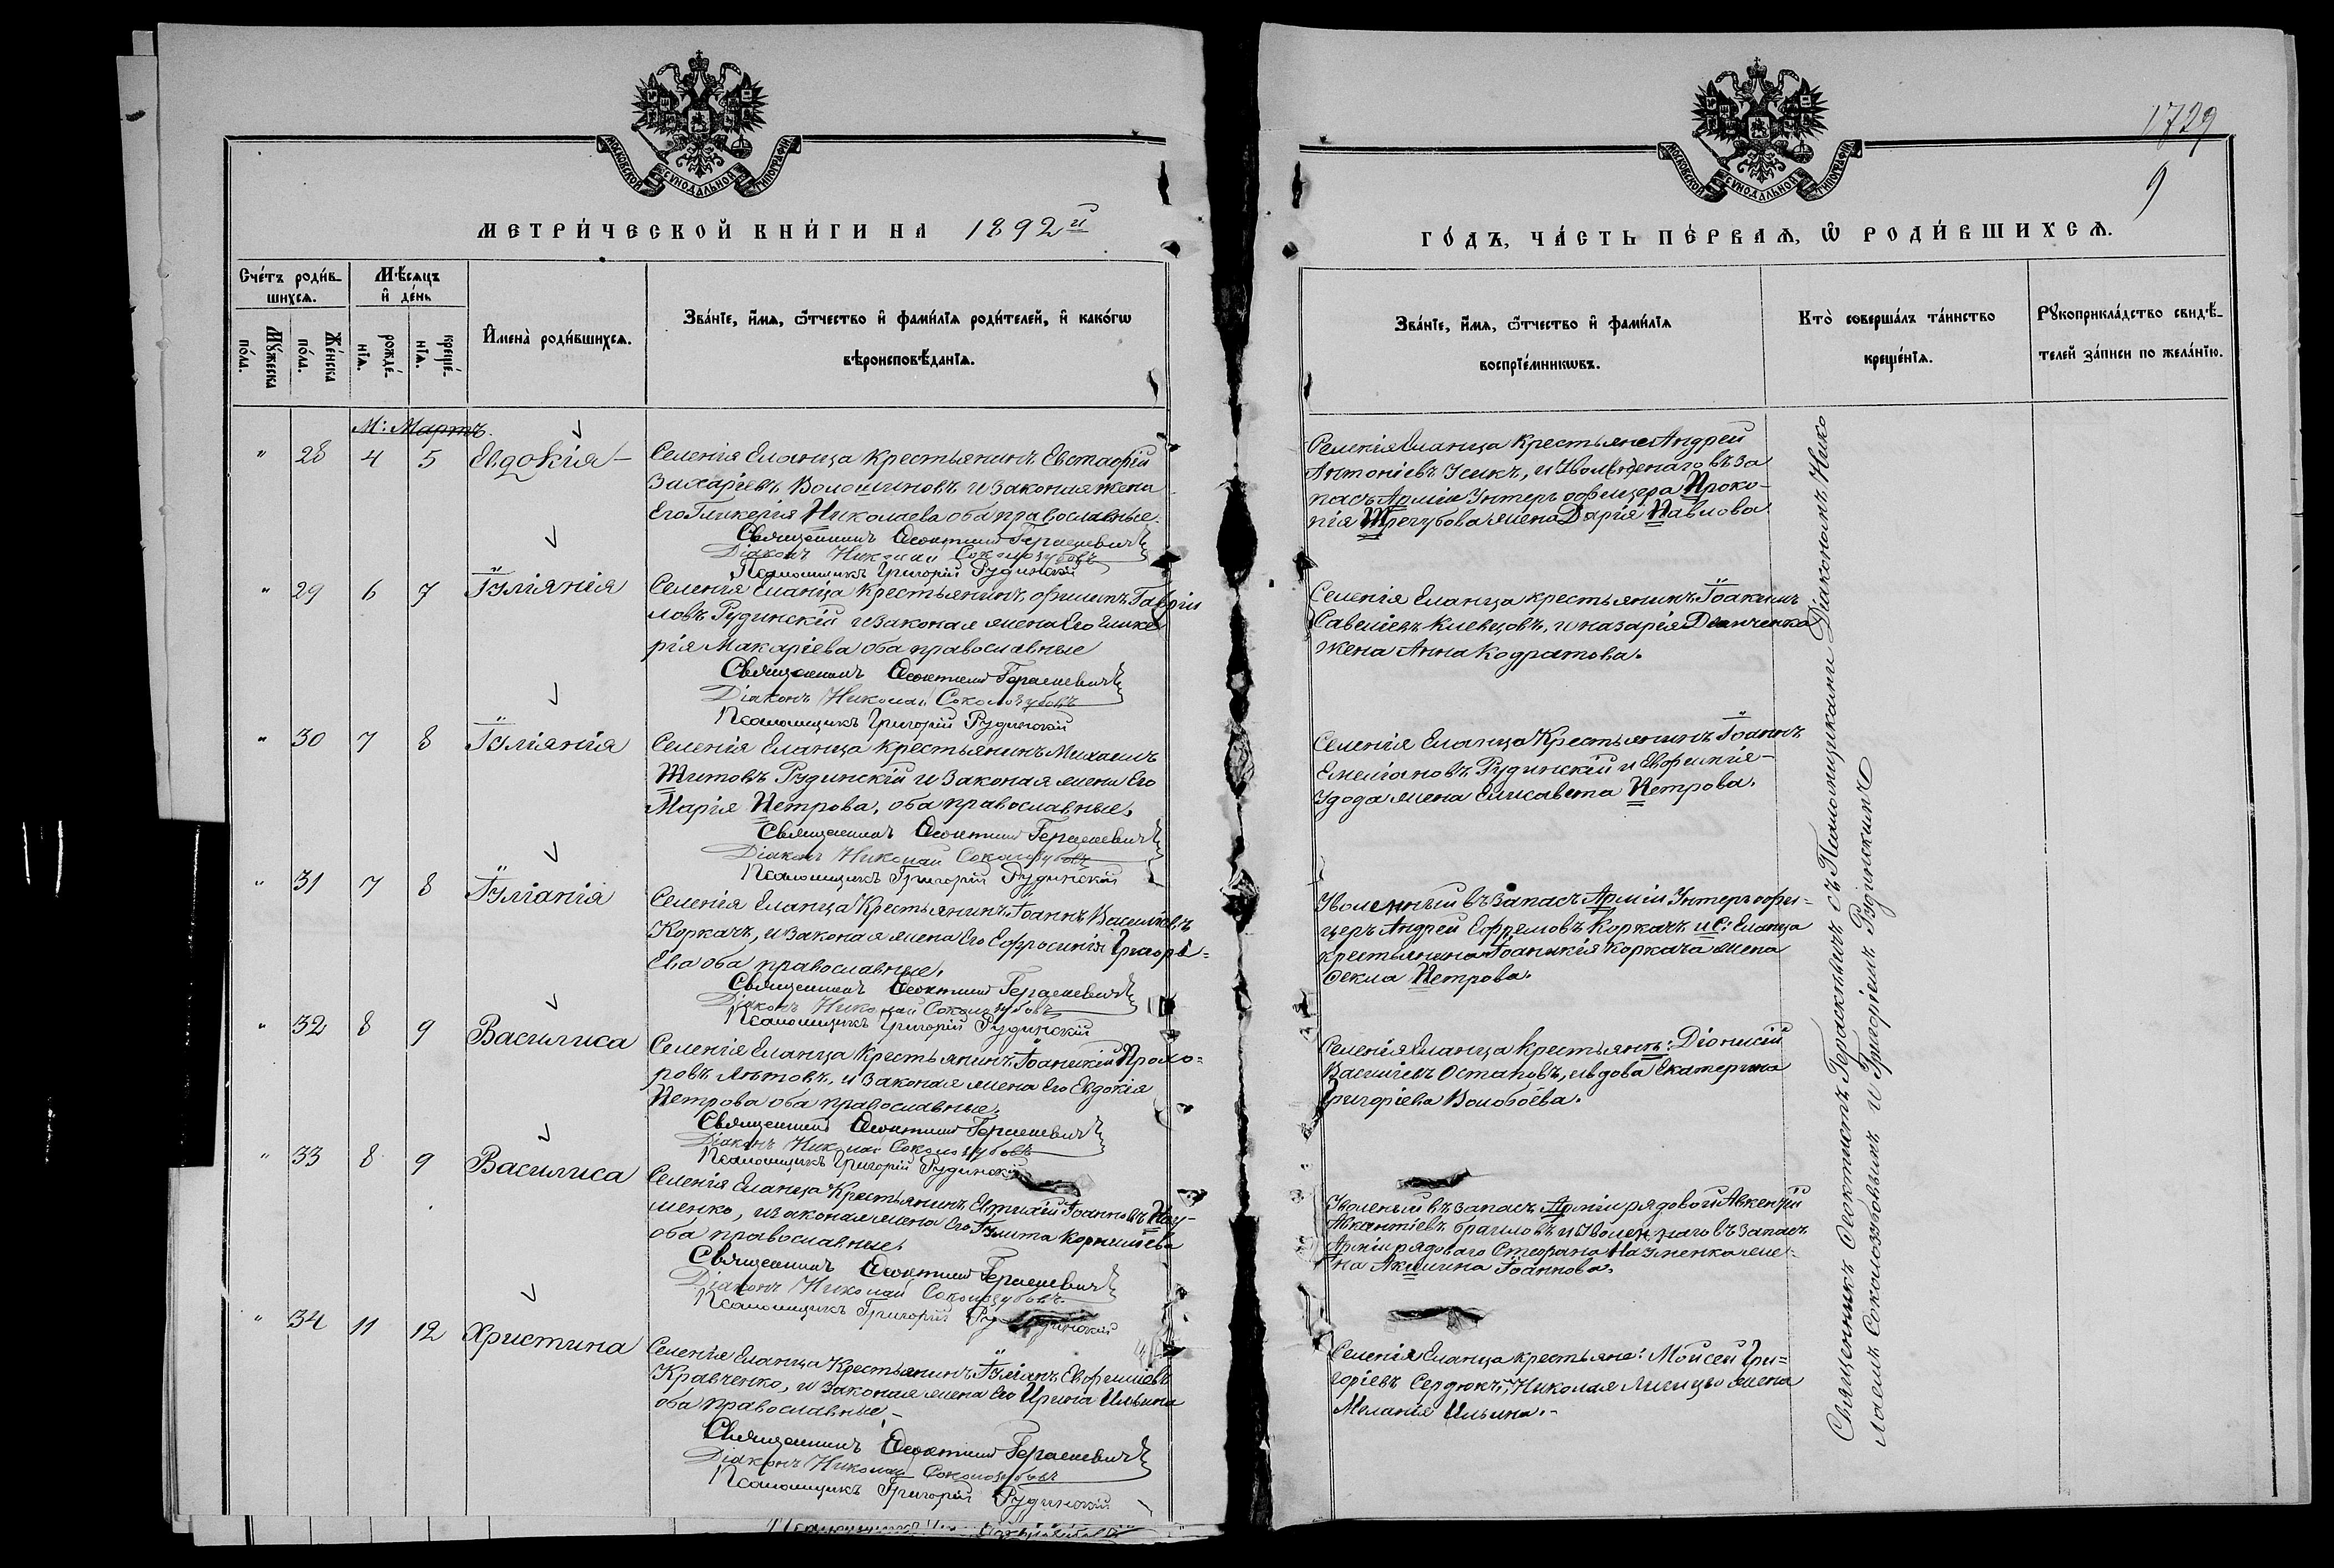 МОСКОВСКОЙ СУНОДАЛЬНОЙ ТИПОГРАФІИ
МЕТРИ́ЧЕСКОЙ КНИ́ГИ НА 1892 й
Сче́тъ роди́в-
шихсѧ.
Мѣ́сяцъ
и҆ де́нь
Мꙋ́жеска
по́ла.
Же́нска
по́ла.
рожде́-
нїѧ.
креще́-
нїѧ.
И҆мена̀ роди́вшихсѧ.
Зва́нїе, и҆́мѧ, ѻ҆́тчество и҆ фами́лїѧ роди́телей, и҆ како́гѡ
вѣроисповѣ́данїѧ.
М: Мартъ.
" 28 4 5 Евдокія
Селенія Еланца крестьянинъ Евстафій
Захаріевъ Волошиновъ и законая жена
Его Гликерія Николаева оба православные.
Священникъ Феоктистъ Гераскевичъ
Діаконъ Николай Соколозубовъ
Псаломщикъ Григорій Рудинскій
" 29 6 7 Іуліянія
Селенія Еланца крестьянинъ Филипъ Гавріи
ловъ Рудинскій и законая жена Его Глике
рія Макаріева оба православные
Священникъ Феоктистъ Гераскевичъ
Діаконъ Николай Соколозубовъ
Псаломщикъ Григорій Рудинскій
" 30 7 8 Іуліянія
Селенія Еланца крестьянинъ Михаилъ
Титовъ Рудинскій и законая жена Его
Марія Петрова, оба православные.
Священникъ Феоктистъ Гераскевичъ
Діаконъ Николай Соколозубовъ
Псаломщикъ Григорій Рудинскій
" 31 7 8 Іуліанія
Селенія Еланца крестьянинъ Іоаннъ Василіевъ
Коркачъ, и законая жена Его Ефросинія Григорі=
Ева оба православные.
Священникъ Феоктистъ Гераскевичъ
Діаконъ Николай Соколозубовъ
Псаломщикъ Григорій Рудинскій
" 32 8 9 Василиса
Селенія Еланца крестьянинъ Іоаникій Прохо=
ровъ Лѣтовъ, и законая жена Его Евдокія
Петрова оба православные.
Священникъ Феоктистъ Гераскевичъ
Діаконъ Николай Соколозубовъ
Псаломщикъ Григорій Рудинскій
" 33 8 9 Василиса
Селенія Еланца Крестьянинъ Евтихій Іоанновъ Нау-
менко, и законая жена Его Іулита Корнилiева
оба православные.
Священникъ Феоктистъ Гераскевичъ
Діаконъ Николай Соколозубовъ
Псаломщикъ Григорій Рудинскій
" 34 11 12 Христина
Селенія Еланца Крестьянинъ Іуліанъ Евфиміевъ
Кравченко, и законая жена Его Ирина Ильина
оба православные,-
Священникъ Феоктистъ Гераскевичъ
Діаконъ Николай Соколозубовъ
Псаломщикъ Григорій Рудинскій
1729
9
МОСКОВСКОЙ СУНОДАЛЬНОЙ ТИПОГРАФІИ
ГО́ДЪ, ЧА́СТЬ ПЕ́РВАѦ, Ѽ РОДИ́ВШИХСѦ.
Зва́нїе, и҆́мѧ, ѻ҆́тчество и҆ фами́лїѧ
воспрїе́мникѡвъ.
Кто̀ соверша́лъ та́инство
креще́нїѧ.
Рꙋкоприкла́дство свидѣ́-
телей за́писи по жела́нїю.
Селенія Еланца крестьяне Андрей
Антоніевъ Усикъ, и Уволеннаго въ за
пасъ Арміи Унтеръ офицера Проко-
пія Трегубова жена Дарія Павлова
Селенія Еланца крестьянинъ Іоакимъ
Савеліевъ Клевцовъ, и Назарія Демченка
жена Анна Кодратова.
Селенія Еланца Крестьянинъ Іоаннъ
Емеліановъ Рудинскій и Евфимія-
Удода жена Елисавета Петрова.
Уволенный въ Запасъ Арміи Унтеръ офи=
церъ Андрей Ефремовъ Коркачъ и С: Еланца
крестьянина Іоаникія Коркача жена
Фекла Петрова.
Селенія Еланца крестьянъ: Діонисій
Василіевъ Остаповъ, и вдова Екатерина
Григоріева Волобоева.
Уволеный въ запасъ Арміи рядовой Авкентій
Брагиловъ и Уволеннаго въ Запасъ
Арміи рядоваго Стефана Науменка же=
на Акилина Іоаннова.
Селенія Еланца крестьяне: Мойсей Гри=
горіевъ Сердюкъ, Николая жена
Меланія Ильина.-
Священникъ Феоктистъ Гераскевичъ съ Псаломщиками Діакономъ Нико
лаемъ Соколозубовымъ и Григоріемъ Рудинскимъ